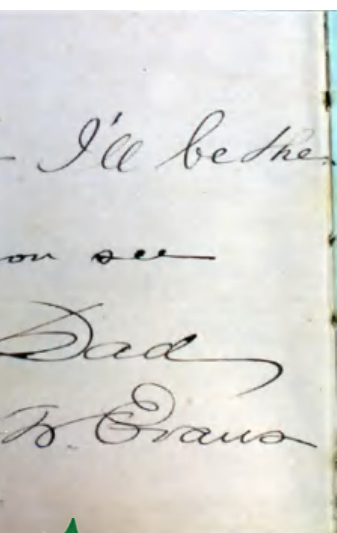 - I'll be the
on see
Dad
W. Evans